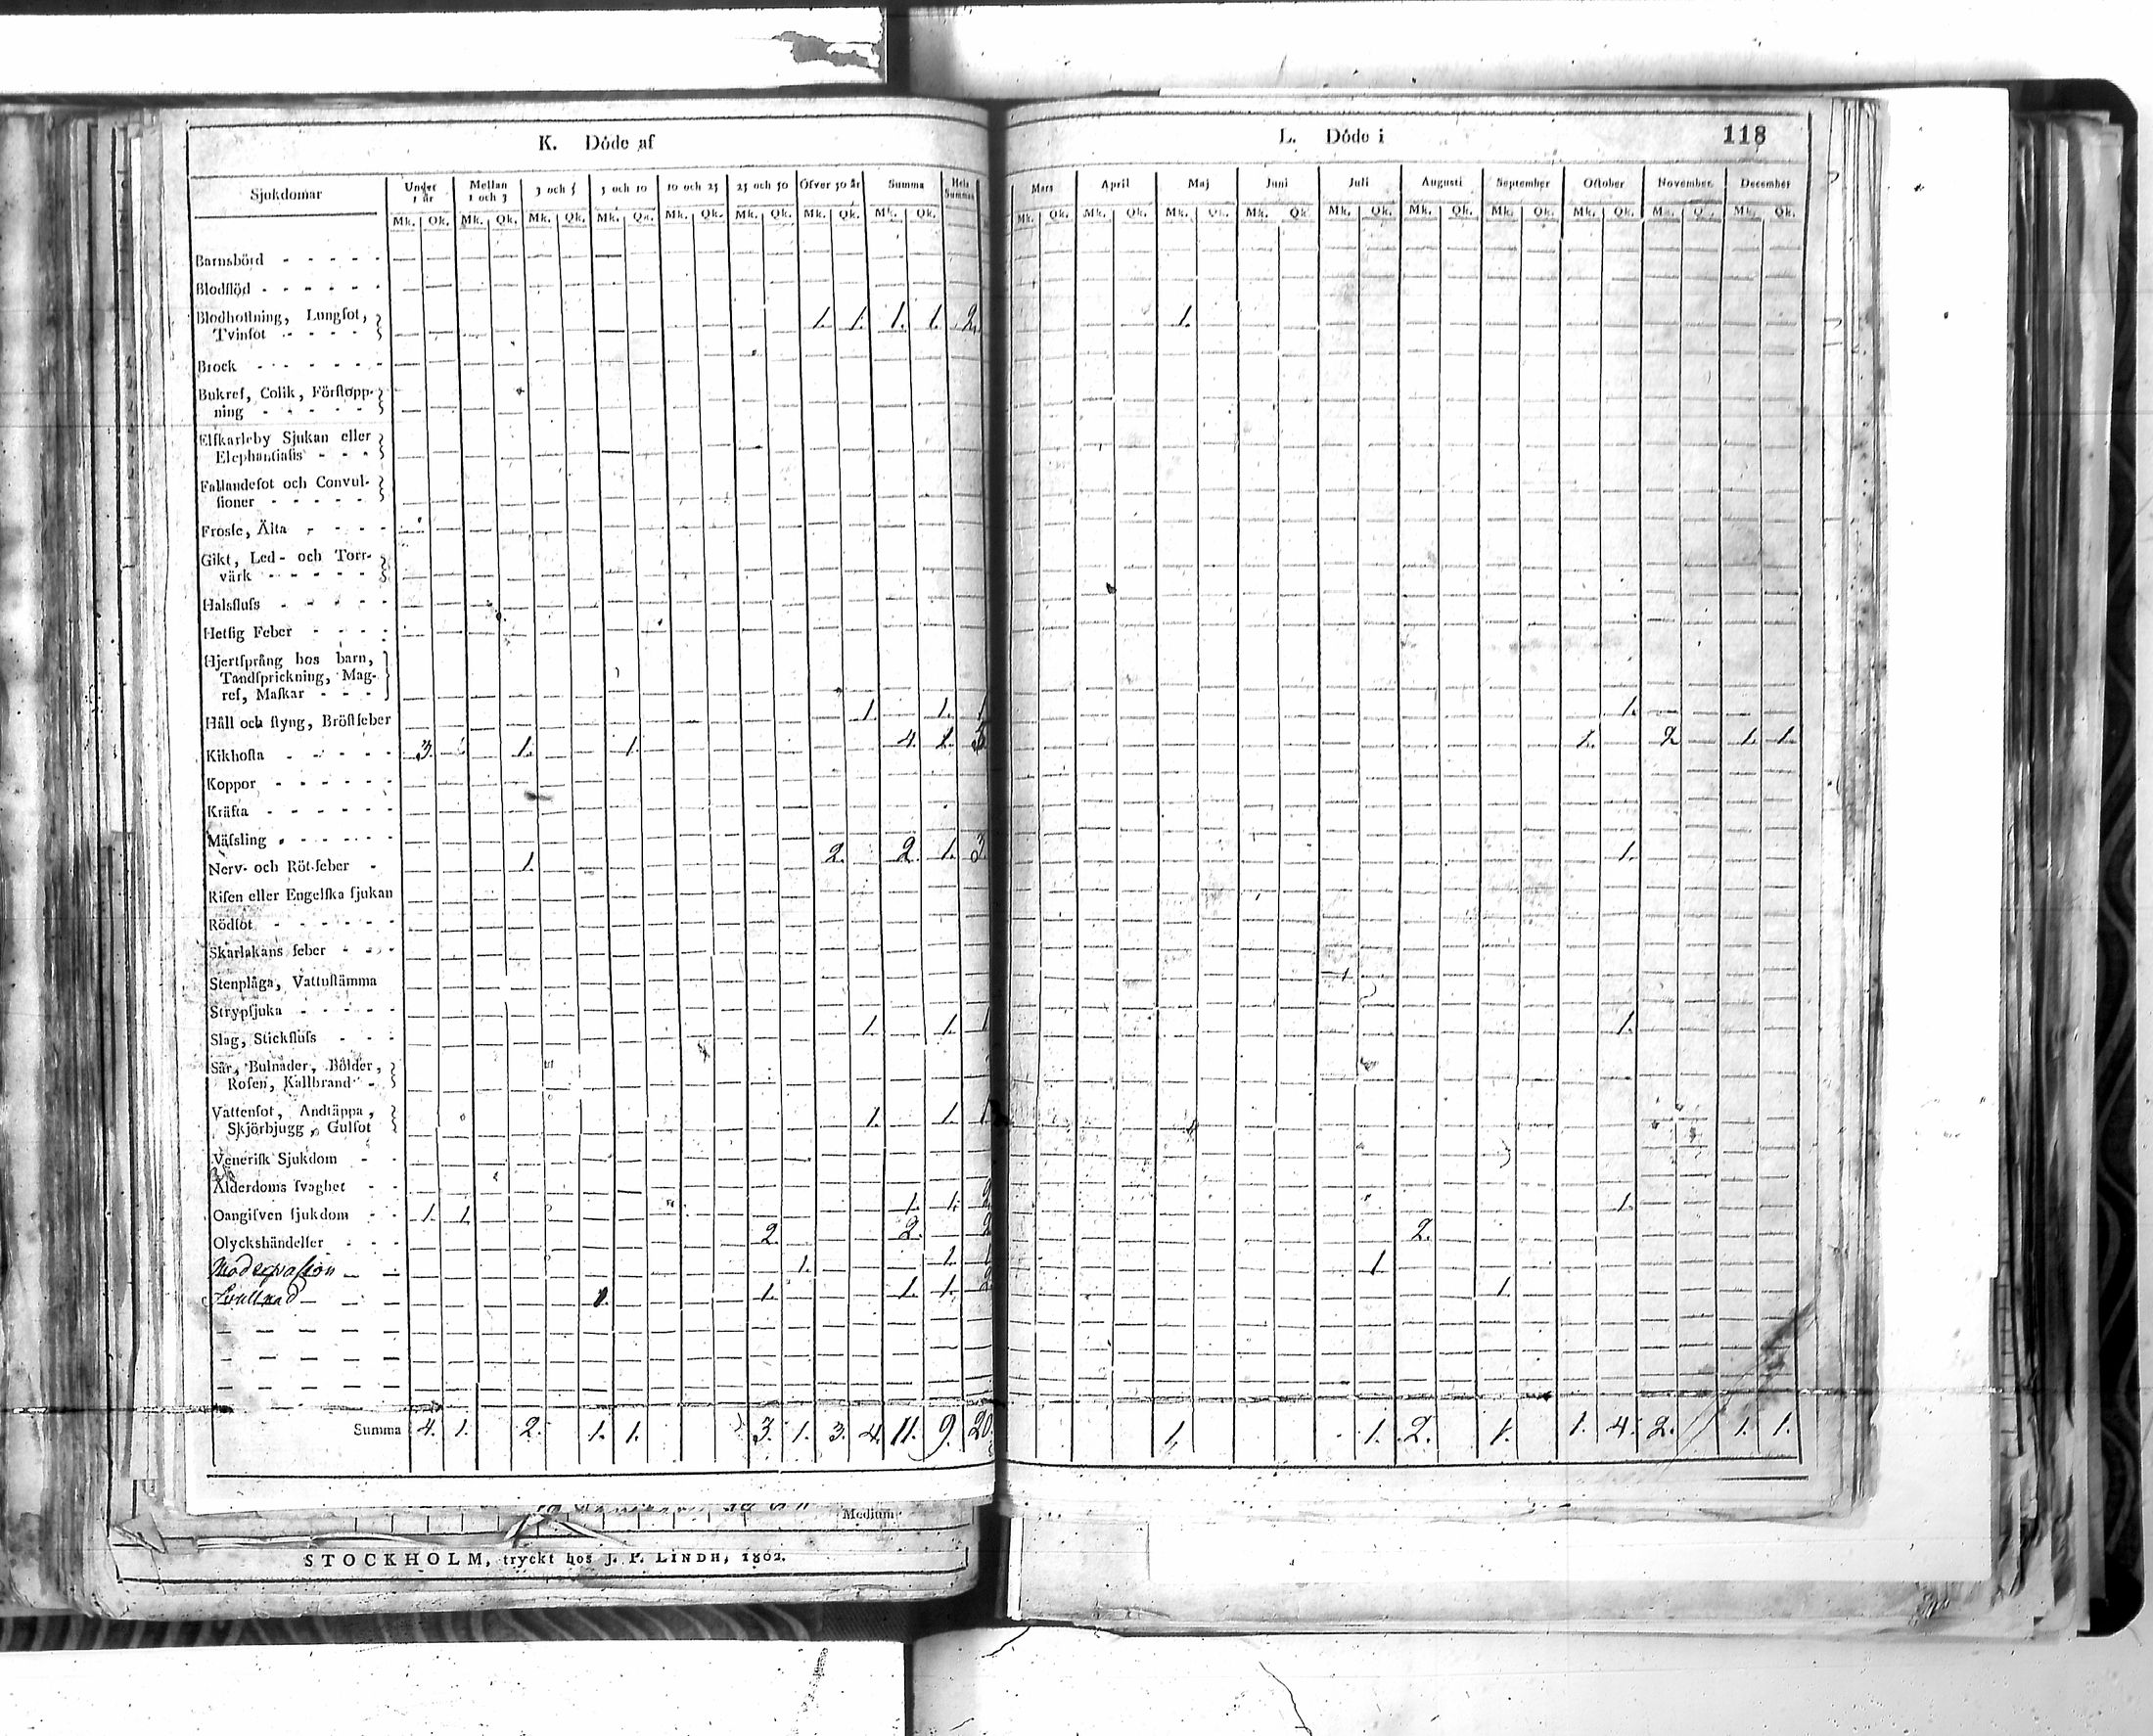 K. Döde af
L. Döde i
118
Sjukdomar Under 1 år Mellan 1 och 3 3 och 5 5 och 10 10 och 25 25 och 50 Öfver 50 år Summa Hela Summan
Mars April Maj Juni Juli Augusti September October November December
Mk. Qk. Mk. Qk. Mk. Qk. Mk. Qk. Mk. Qk. Mk. Qk. Mk. Qk. Mk. Qk.
Mk. Qk. Mk. Qk. Mk. Qk. Mk. Qk. Mk. Qk. Mk. Qk. Mk. Qk. Mk. Qk. Mk. Qk. Mk. Qk.
Barnsbörd
Blodflöd
Blodhostning, Lungsot,
Tvinsot 1. 1. 1. 1. 2. 1.
Brock
Bukref, Colik, Förstopp-
ning
Elfkarleby Sjukan eller
Elephantiasis
Fallandesot och Convul-
sioner
Frossa, Älta
Gikt, Led- och Torr-
värk
Halsfluss
Hetsig Feber
Hjertsprång hos barn,
Tandsprickning, Mag-
ref, Maskar
Håll och styng, Bröstfeber 1. 1. 1 1.
Kikhosta 3. 1. 1. 4. 1. 5 1. 2 1. 1.
Koppor
Kräfta
Mässling
Nerv- och Röt-feber 1. 2. 2. 1. 3. 1.
Risen eller Engelska sjukan
Rödsot
Skarlakans feber
Stenplåga, Vattustämma
Strypsjuka
Slag, Stickfluss 1. 1. 1 1.
Sår, Bulnader, Bölder,
Rosen, Kallbrand
Vattensot, Andtäppa,
Skjörbjugg, Gulsot 1. 1. 1
Venerisk Sjukdom
Ålderdoms svaghet
Oangifven sjukdom 1. 1. 1. 1. 2 1.
Olyckshändelser 2. 2. 2 2.
Moderpassion 1. 1. 1 1.
Svullnad 1. 1. 1. 1. 2 1.
Summa 4. 1. 2. 1. 1. 3. 1. 3. 4. 11. 9. 20. 1. 1. 2. 1. 1. 4. 2. 1. 1.
Medium
STOCKHOLM, tryckt hos J. P. LINDH, 1802.